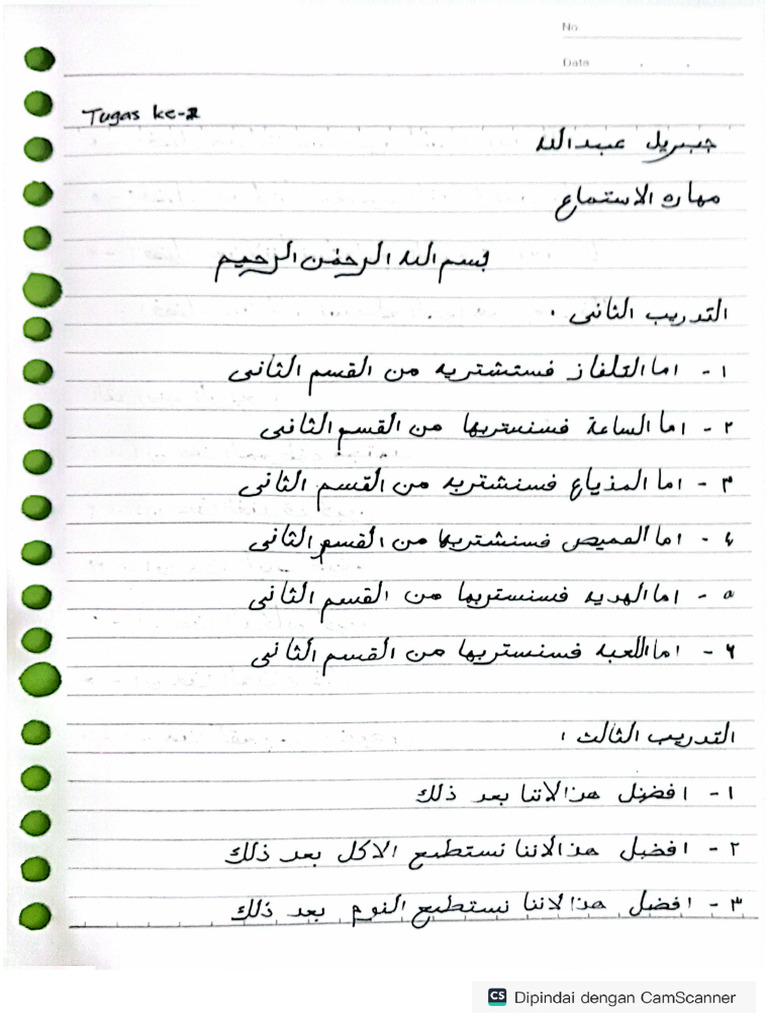 No
Date
Tugas ke-2
جبريل عبد الله
مهاره الاستماع
بسم الله الرحمن الرحيم
التدريب الثانى :
١ - اما التلفاز فستشتريه من القسم الثانى
٢ - اما الساعة فسنستربها من القسم الثانى
٣ - اما المذياع فسنشتريه من القسم الثانى
٤ - اما القميص فسنشتريها من القسم الثانى
٥ - اما الهديه فسنستربها من القسم الثانى
٦ - اما اللعبه فسنستربها من القسم الثانى
التدريب الثالث :
١ - افضل هذا لاننا بعد ذلك
٢ - افضل هذا لاننا نستطيع الاكل بعد ذلك
٣ - افضل هذا لاننا نستطيع النوم بعد ذلك
CS Dipindai dengan CamScanner